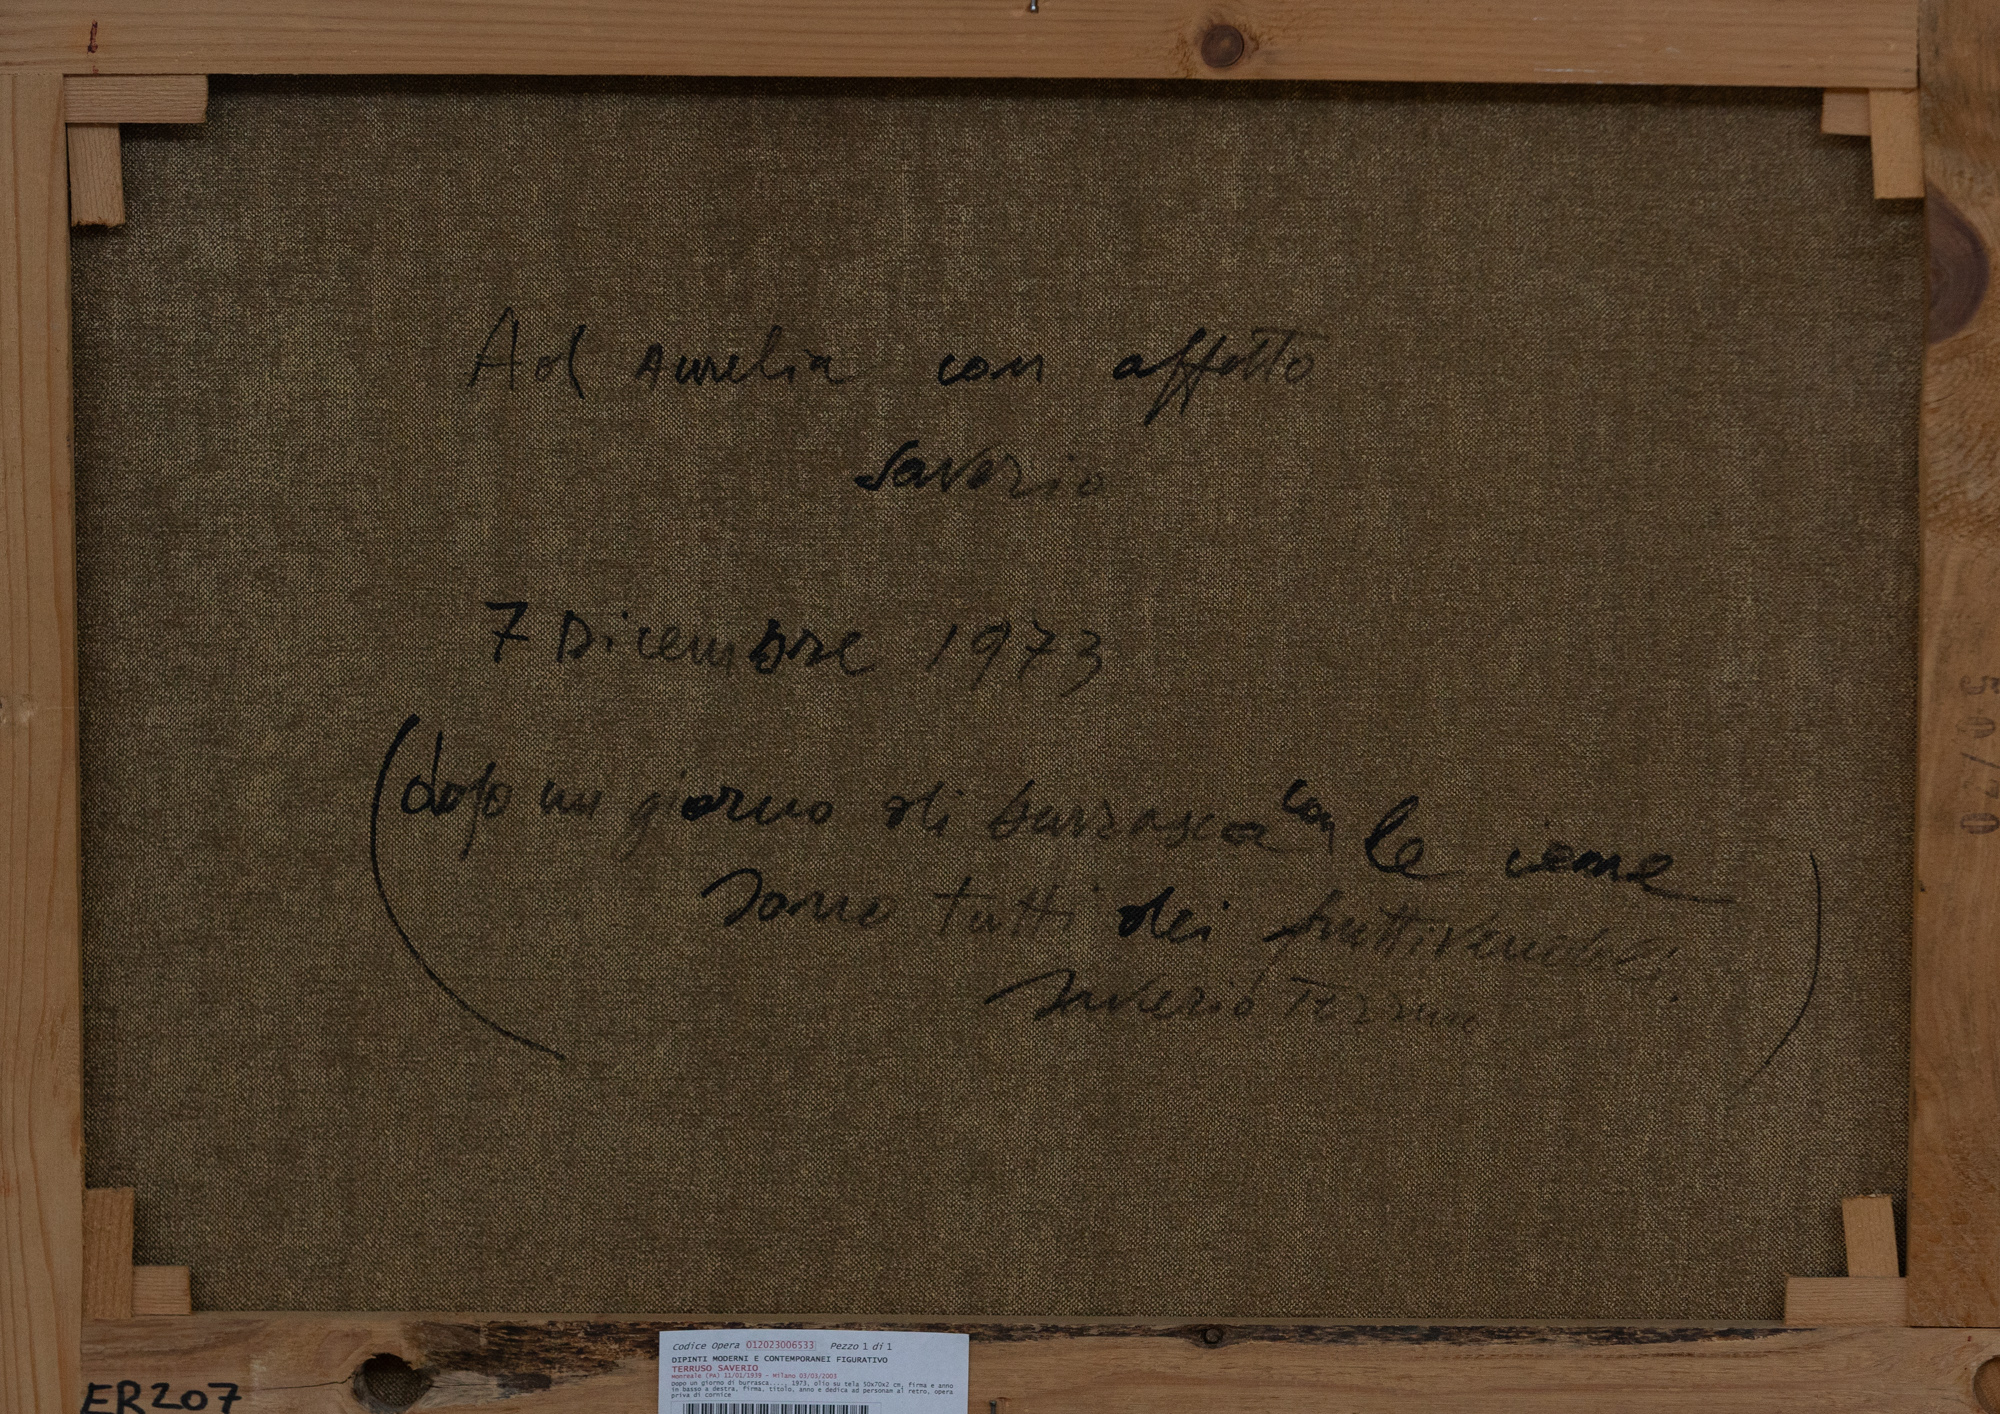 Ad Aurelia con affetto
Saverio
7 Dicembre 1973
(dopo un giorno di burrasca con le iene
sono tutti dei fruttivendoli.
Saverio Terruso)
50/70
ER207
Codice Opera 012023006533 Pezzo 1 di 1
DIPINTI MODERNI E CONTEMPORANEI FIGURATIVO
TERRUSO SAVERIO
Monreale (PA) 11/01/1939 - Milano 03/03/2003
Dopo un giorno di burrasca...., 1973, olio su tela 50x70x2 cm, firma e anno
in basso a destra, firma, titolo, anno e dedica ad personam al retro, opera
priva di cornice